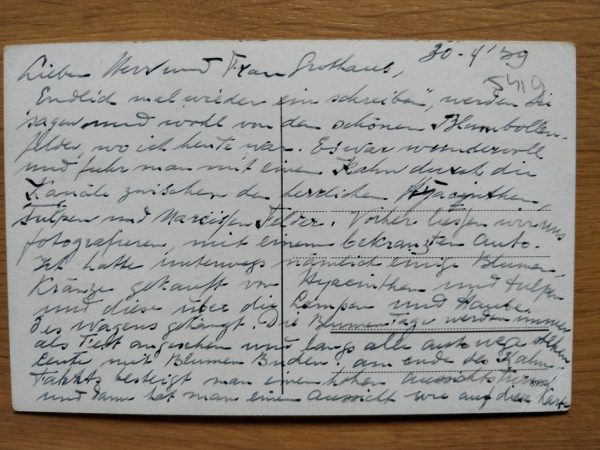 30-4'39
Lieber Herr und Frau Grothaus,
Endlich mal wieder ein schreiben", werden Sie
sagen und wohl von den schönen Blumbollen-
felder, wo ich heute war. Es war wundervoll
und fuhr man mit einen Kahn durch die
Kanäle zwischen den herrlichen Hyacinthen,
Tulpen und Narcissen Felder. Vorher liessen wir uns
fotografieren, mit einem bekränzten Auto.
Ich hatte unterwegs nämlich einige Blumen
Kränze gekauft von Hyacinthen und Tulpen
und diese über die Lampen und Haube
des Wagens gehängt. Die Blumen Tage werden immer
als Fest angesehen und längs alle autowege stehen
Leute mit Blumen Buden. am ende der Kahn
Fahrt besteigt man einen hohen Aussichts Turm
und dann hat man einen Aussicht wie auf diese Karte